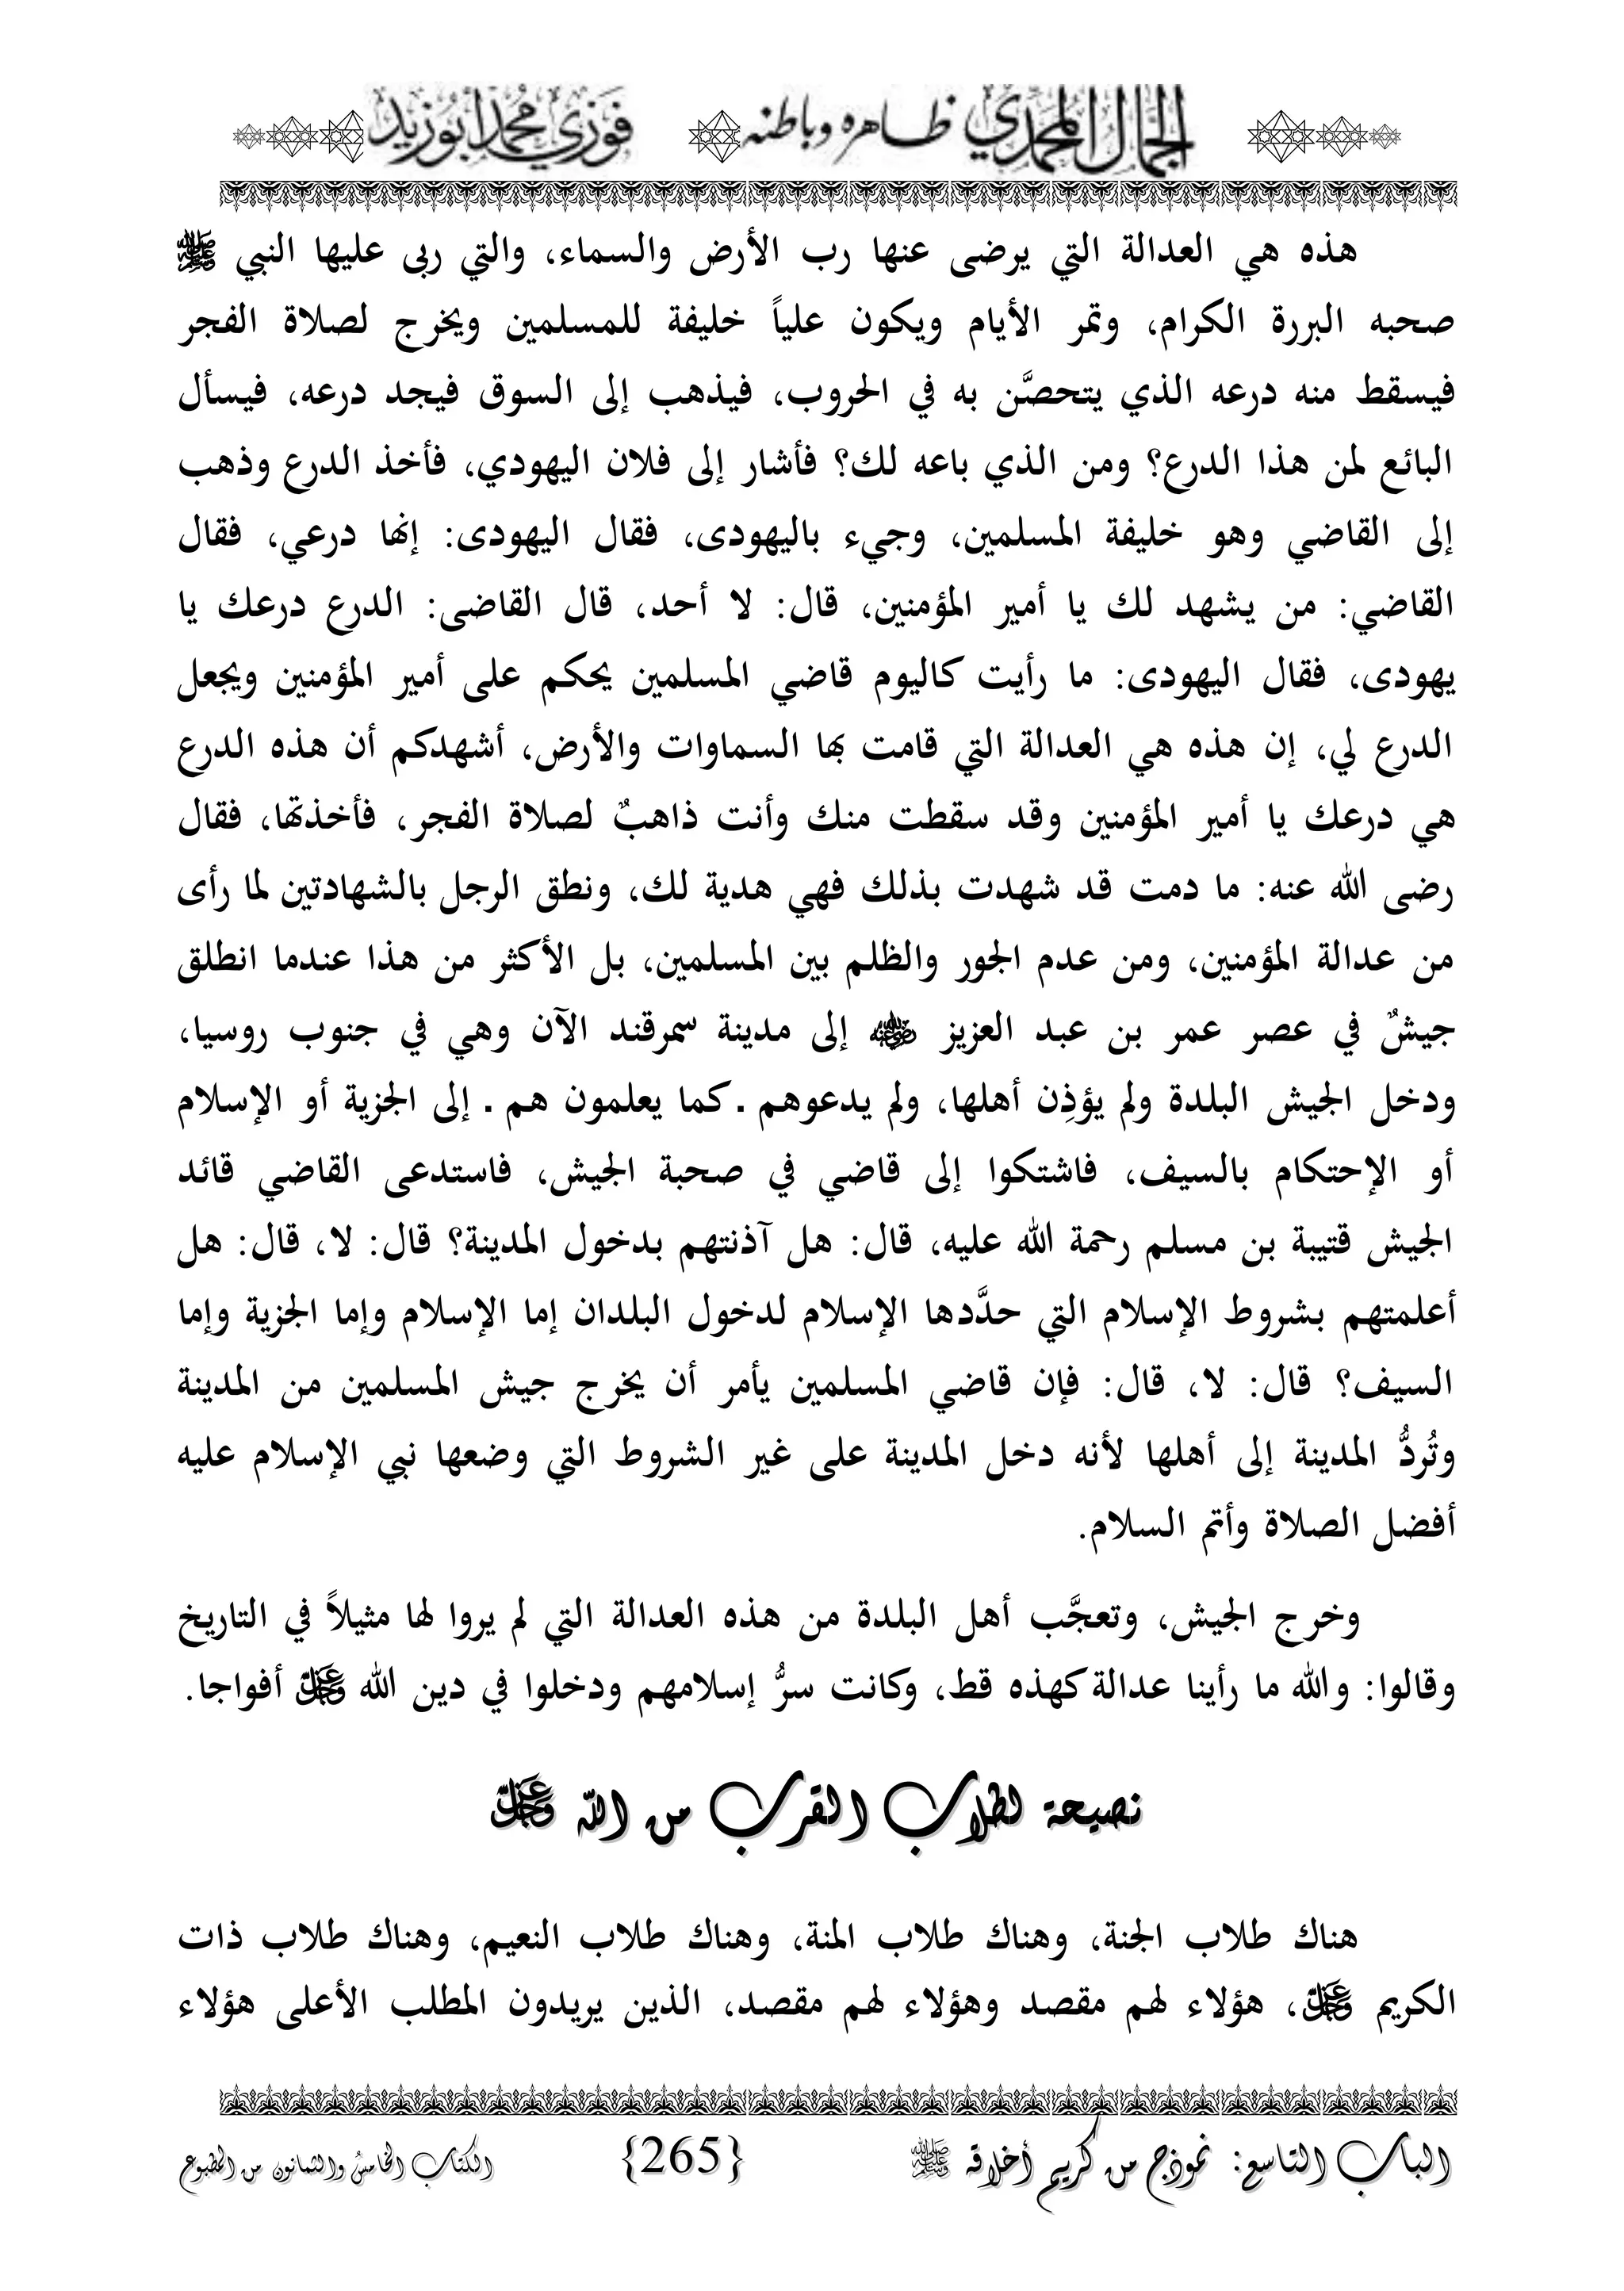 الجمال المحمدي ظاهره وباطنه فوزي محمد أبوزيد
هذه هي العدالة التي يرضى عنها رب الأرض والسماء، والتي ربى عليها النبي ﷺ
صحبه البررة الكرام، وتمر الأيام ويكون علياً خليفة للمسلمين ويخرج لصلاة الفجر
فيسقط منه درعه الذي يتحصَّن به في الحروب، فيذهب إلى السوق فيجد درعه، فيسأل
البائع لمن هذا الدرع؟ ومن الذي باعه لك؟ فأشار إلى فلان اليهودي، فأخذ الدرع وذهب
إلى القاضي وهو خليفة المسلمين، وجيء باليهودى، فقال اليهودى: إنها درعي، فقال
القاضي: من يشهد لك يا أمير المؤمنين، قال: لا أحد، قال القاضى: الدرع درعك يا
يهودى، فقال اليهودى: ما رأيت كاليوم قاضي المسلمين يحكم على أمير المؤمنين ويجعل
الدرع لي، إن هذه هي العدالة التي قامت بها السماوات والأرض، أشهدكم أن هذه الدرع
هي درعك يا أمير المؤمنين وقد سقطت منك وأنت ذاهبٌ لصلاة الفجر، فأخذتها، فقال
رضى الله عنه: ما دمت قد شهدت بذلك فهي هدية لك، ونطق الرجل بالشهادتين لما رأى
من عدالة المؤمنين، ومن عدم الجور والظلم بين المسلمين، بل الأكثر من هذا عندما انطلق
جيشٌ في عصر عمر بن عبد العزيز ﵁ إلى مدينة سمرقند الآن وهي في جنوب روسيا،
ودخل الجيش البلدة ولم يؤذِن أهلها، ولم يدعوهم ـ كما يعلمون هم ـ إلى الجزية أو الإسلام
أو الإحتكام بالسيف، فاشتكوا إلى قاضي في صحبة الجيش، فاستدعى القاضي قائد
الجيش قتيبة بن مسلم رحمة الله عليه، قال: هل آذنتهم بدخول المدينة؟ قال: لا، قال: هل
أعلمتهم بشروط الإسلام التي حدَّدها الإسلام لدخول البلدان إما الإسلام وإما الجزية وإما
السيف؟ قال: لا، قال: فإن قاضي المسلمين يأمر أن يخرج جيش المسلمين من المدينة
وتُردُّ المدينة إلى أهلها لأنه دخل المدينة على غير الشروط التي وضعها نبي الإسلام عليه
أفضل الصلاة وأتم السلام.
وخرج الجيش، وتعجَّب أهل البلدة من هذه العدالة التي لم يروا لها مثيلاً في التاريخ
وقالوا: والله ما رأينا عدالة كهذه قط، وكانت سرُّ إسلامهم ودخلوا في دين الله عزوجل أفواجا.
نصيحة لطلاب القرب من الله عزوجل
هناك طلاب الجنة، وهناك طلاب المنة، وهناك طلاب النعيم، وهناك طلاب ذات
الكريم عزوجل، هؤلاء لهم مقصد وهؤلاء لهم مقصد، الذين يريدون المطلب الأعلى هؤلاء
الباب التاسع: نموذج من كريم أخلاقه ﷺ {265} الكتاب الخامس والثمانون من المطبوع